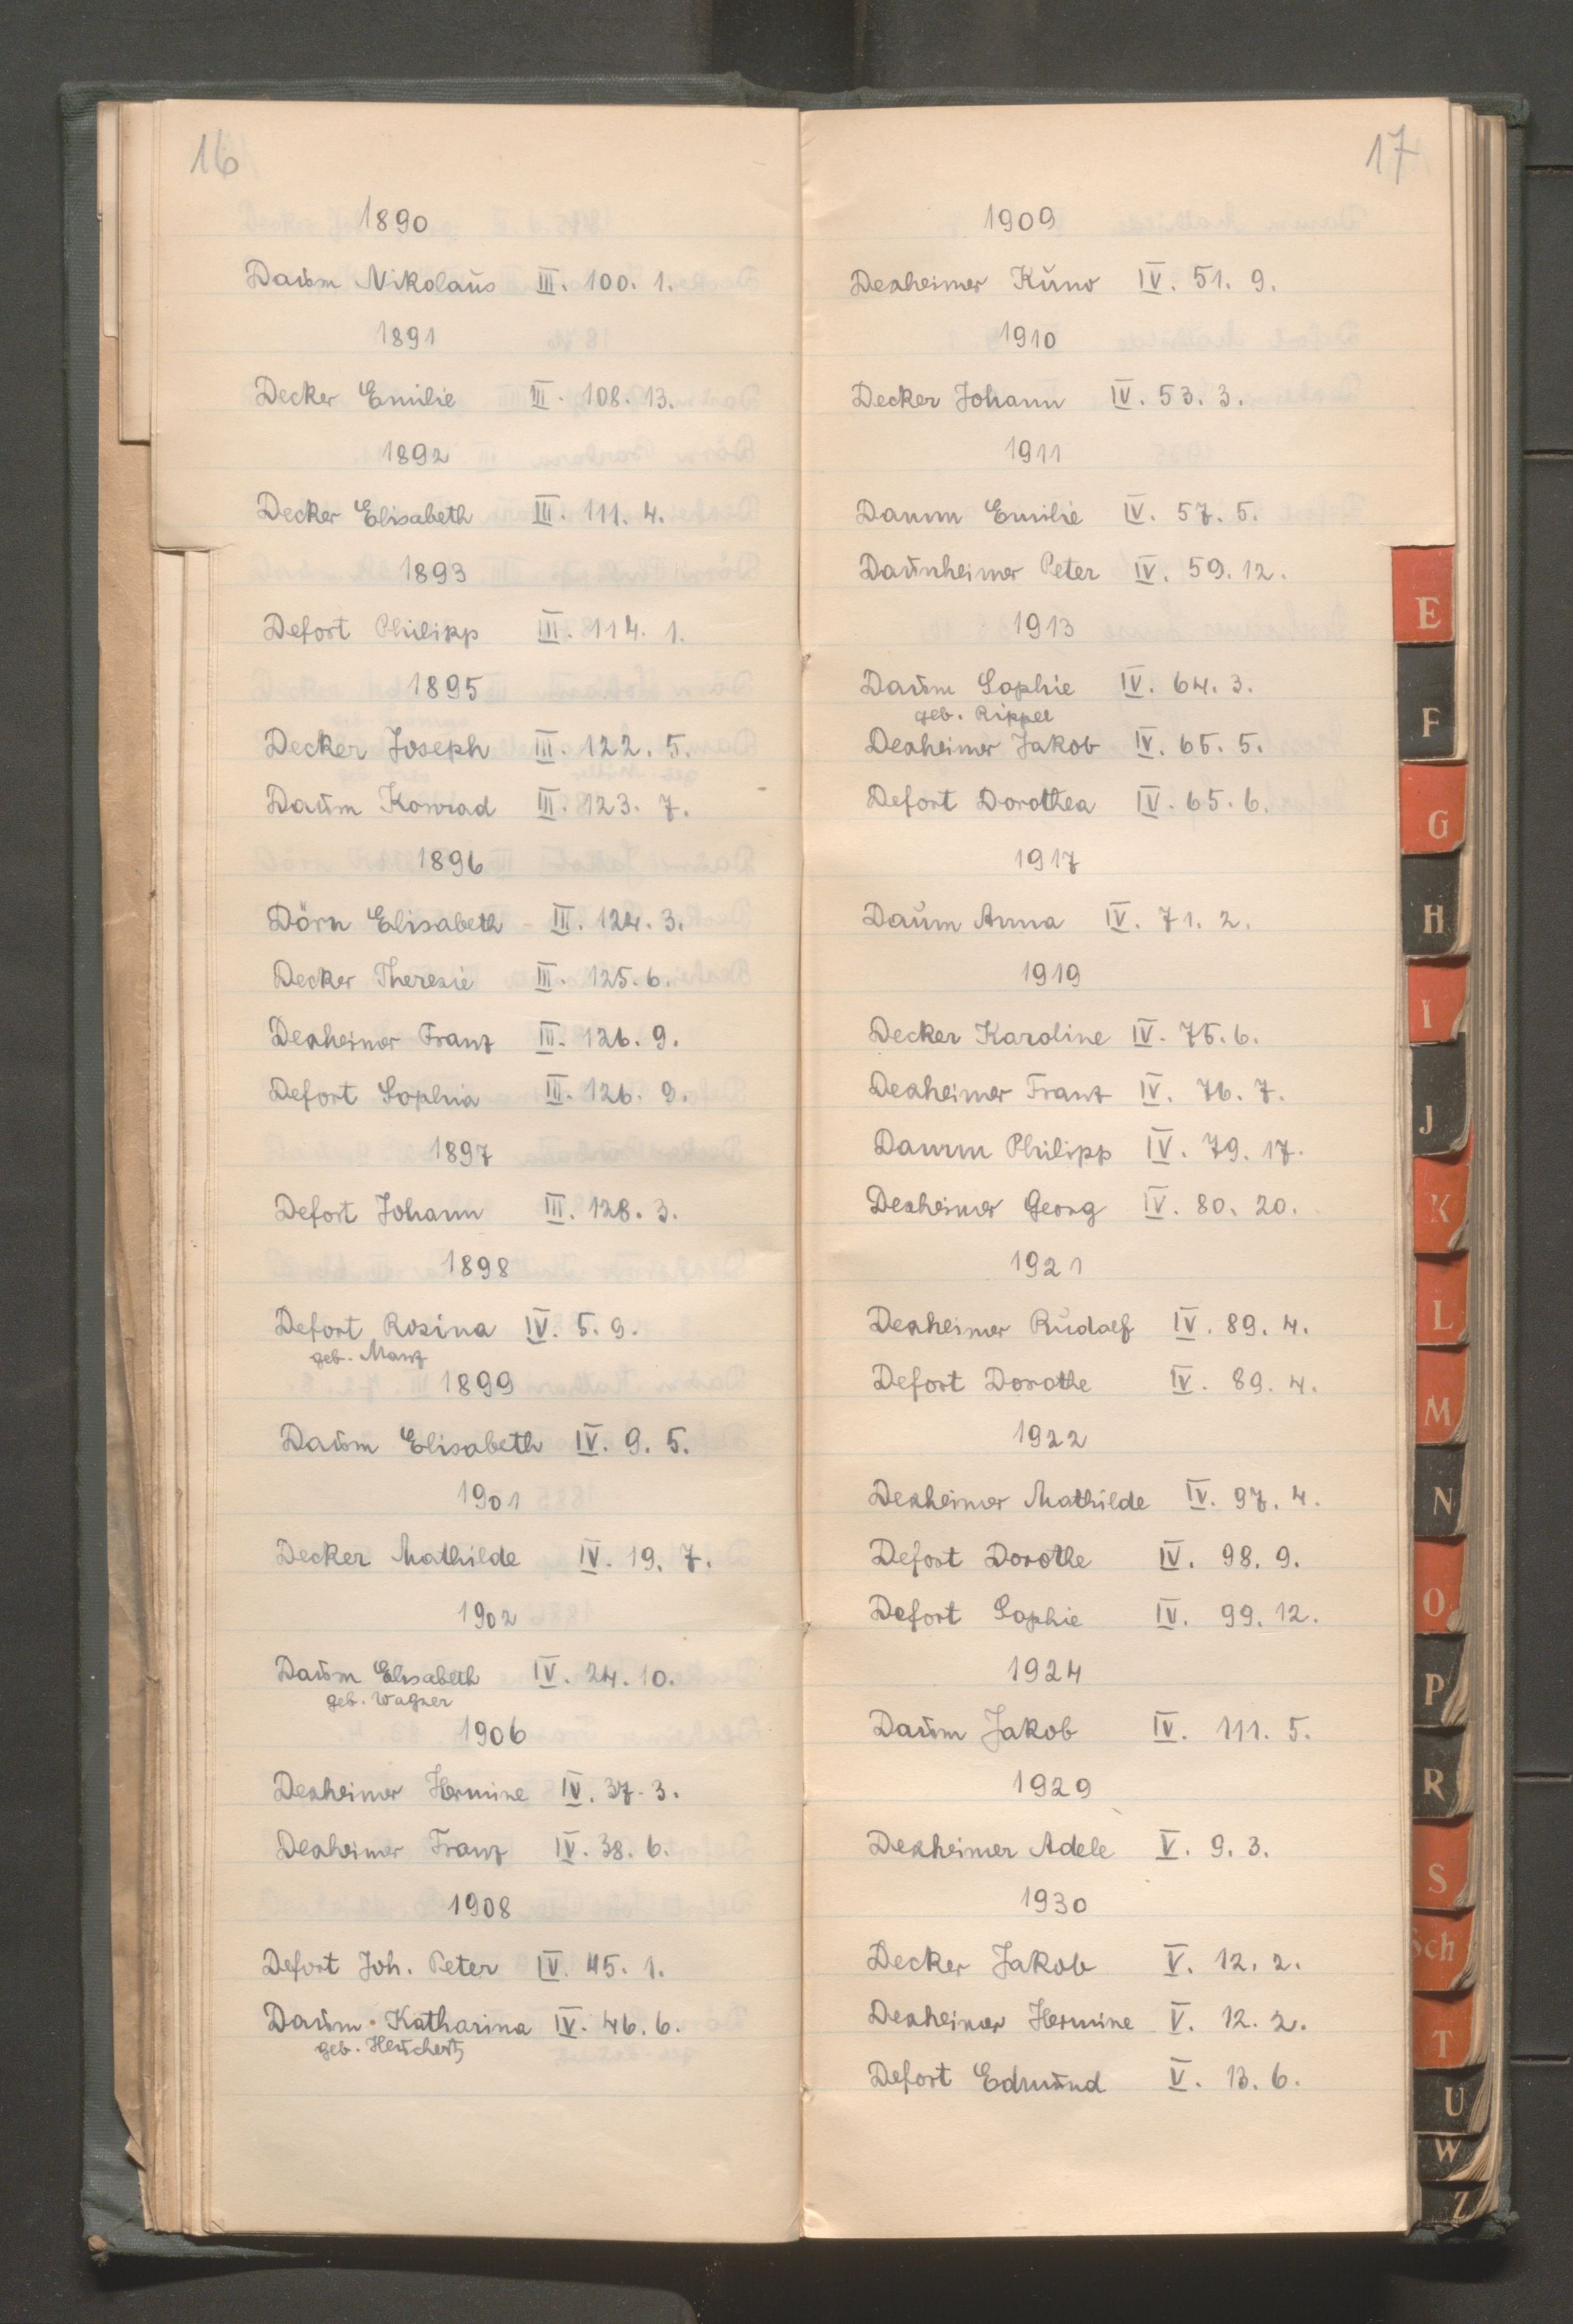 16
1890
Daum Nikolaus III. 100. 1.
1891
Decker Emilie III. 108. 13.
1892
Decker Elisabeth III. 111. 4.
1893
Defort Philipp III. 114. 1.
1895
Decker Joseph III. 122. 5.
Daum Konrad III. 123. 7.
1896
Dörn Elisabeth - III. 124. 3.
Decker Theresie III. 125. 6.
Dexheimer Franz III. 126. 9.
Defort Sophia III. 126. 9.
1897
Defort Johann III. 128. 3.
1898
Defort Rosina IV. 5. 9.
geb. Manz
1899
Daum Elisabeth IV. 9. 5.
1901
Decker Mathilde IV. 19. 7.
1902
Daum Elisabeth IV. 24. 10.
geb. Wagner
1906
Dexheimer Hermine IV. 37. 3.
Dexheimer Franz IV. 38. 6.
1908
Defort Joh. Peter IV. 45. 1.
Daum Katharina IV. 46. 6.
geb. Heuchert
17
1909
Dexheimer Kuno IV. 51. 9.
1910
Decker Johann IV. 53. 3.
1911
Damm Emilie IV. 57. 5.
Daunheimer Peter IV. 59. 12.
1913
Daum Sophie IV. 64. 3.
geb. Rippel
Dexheimer Jakob IV. 65. 5.
Defort Dorothea IV. 65. 6.
1917
Daum Anna IV. 71. 2.
1919
Decker Karoline IV. 75. 6.
Dexheimer Franz IV. 76. 7.
Damm Philipp IV. 79. 17.
Dexheimer Georg IV. 80. 20.
1921
Dexheimer Rudolf IV. 89. 4.
Defort Dorothe IV. 89. 4.
1922
Dexheimer Mathilde IV. 97. 4.
Defort Dorothe IV. 98. 9.
Defort Sophie IV. 99. 12.
1924
Daum Jakob IV. 111. 5.
1929
Dexheimer Adele V. 9. 3.
1930
Decker Jakob V. 12. 2.
Dexheimer Hermine V. 12. 2.
Defort Edmund V. 13. 6.
E
F
G
H
I
J
K
L
M
N
O
P
R
S
Sch
T
U
W
Z